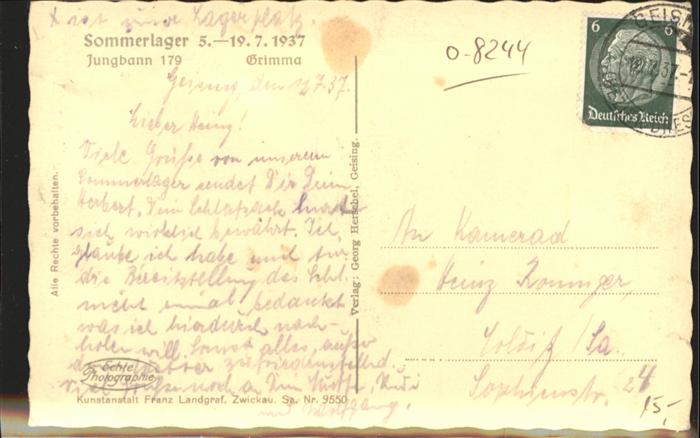 x ist unser Lagerplatz.
Sommerlager 5.—19.7.1937
Jungbann 179 Grimma
Geising, den 12.7.37.
Lieber Heinz!
Viele Grüße von unserem
Sommerlager sendet Dir Dein
Herbert. Dein Schlafsack hat
sich wirklich bewährt. Ich
glaube ich habe mich für
die Bereitstellung des Schl.
nicht einmal bedankt
was ich hierdurch nach-
holen will. Sonst alles, außer
Wetter zufriedenstellend.
noch an
und Wolfgang.
Alle Rechte vorbehalten.
Echte
Photographie
Kunstanstalt Franz Landgraf, Zwickau. Sa. Nr. 9550
Verlag: Georg Hertzbel, Geising.
0-8244
6 6
Deutsches Reich
GEISING
An Kamerad
Heinz
/Sa.
Sophienstr. 24
15,-